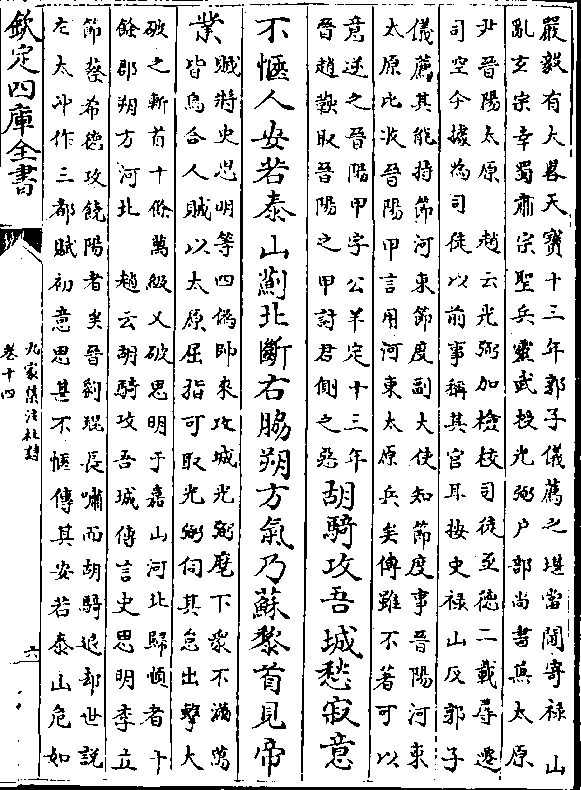 嚴毅有大畧天寶十三年郭子儀薦之堪當閫寄禄山
亂玄宗幸蜀肅宗聖兵靈武授光弼户部尚書兼太原
尹晉陽太原 趙云光弼加檢校司徒至德二載尋遷
司空今據為司徒以前事稱其官耳按史禄山反郭子
儀薦其能持節河東節度副大使知節度事晉陽河東
太原比次晉陽甲言用河東太原兵矣傳雖不著可以
意逆之晉陽甲字公羊定十三年
晉趙鞅取晉陽之甲討君側之惡
胡騎攻吾城愁寂意
不愜人安若泰山薊北斷右脇朔方氣乃蘇黎首見帝
業
賊將史思明等四偽帥來攻城光弼麾下衆不滿萬
皆烏合人賊以太原屈指可取光弼伺其怠出擊大
破之斬首十餘萬級又破思明于嘉山河北歸順者十
餘郡朔方河北 趙云胡騎攻吾城傳言史思明李立
節蔡希德攻饒陽者矣晉劉琨長嘯而胡騎退却世説
左太冲作三都賦初意思甚不愜傳其安若泰山危如
欽定四庫全書
九家集注杜詩
卷十四
六